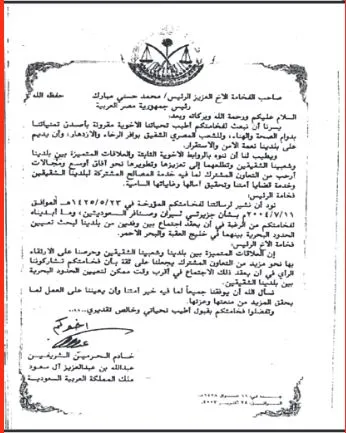 صاحب الفخامة الأخ العزيز الرئيس / محمد حسني مبارك حفظه الله
رئيس جمهورية مصر العربية
السلام عليكم ورحمة الله وبركاته وبعد،
يسرنا أن نبعث لفخامتكم أطيب تحياتنا الأخوية مقرونة بأصدق تمنياتنا
بدوام الصحة والهناء، وللشعب المصري الشقيق بوافر الرخاء والازدهار، وأن يديم
على بلدينا نعمة الأمن والاستقرار.
ويطيب لنا أن ننوه بالروابط الأخوية الثابتة والعلاقات المتميزة بين بلدينا
وشعبينا الشقيقين وتطلعهما إلى تعزيزها وتطويرها نحو آفاق أوسع ومجالات
أرحب من التعاون المشترك لما فيه خدمة المصالح المشتركة لبلدينا الشقيقين
وخدمة قضايا أمتنا وتحقيق آمالها وغاياتها السامية.
فخامة الرئيس:
نود أن نشير لرسالتنا لفخامتكم المؤرخة في ١٤٢٥/٥/٢٣هـ الموافق
٢٠٠٤/٧/١١م بشأن جزيرتي تيران وصنافر السعوديتين، وما أبديناه
لفخامتكم من الرغبة في أن يعقد اجتماع بين وفدين من بلدينا لبحث تعيين
الحدود البحرية بينهما في خليج العقبة والبحر الأحمر.
فخامة الأخ:
إن العلاقات المتميزة بين بلدينا وشعبينا الشقيقين وحرصنا على الارتقاء
بها نحو مزيد من التعاون المشترك يجعلنا على ثقة بأن فخامتكم تشاركوننا
الرأي في أن يعقد ذلك الاجتماع في أقرب وقت ممكن لتعيين الحدود البحرية
بين بلدينا الشقيقين.
نسأل الله أن يوفقنا جميعاً لما فيه خير أمتنا وأن يعيننا على العمل لما
يحقق المزيد من منعتها وعزتها.
وتفضلوا فخامتكم بقبول أطيب تحياتي وخالص تقديري،،،
أخوكم
خادم الحرمين الشريفين
عبدالله بن عبدالعزيز آل سعود
ملك المملكة العربية السعودية